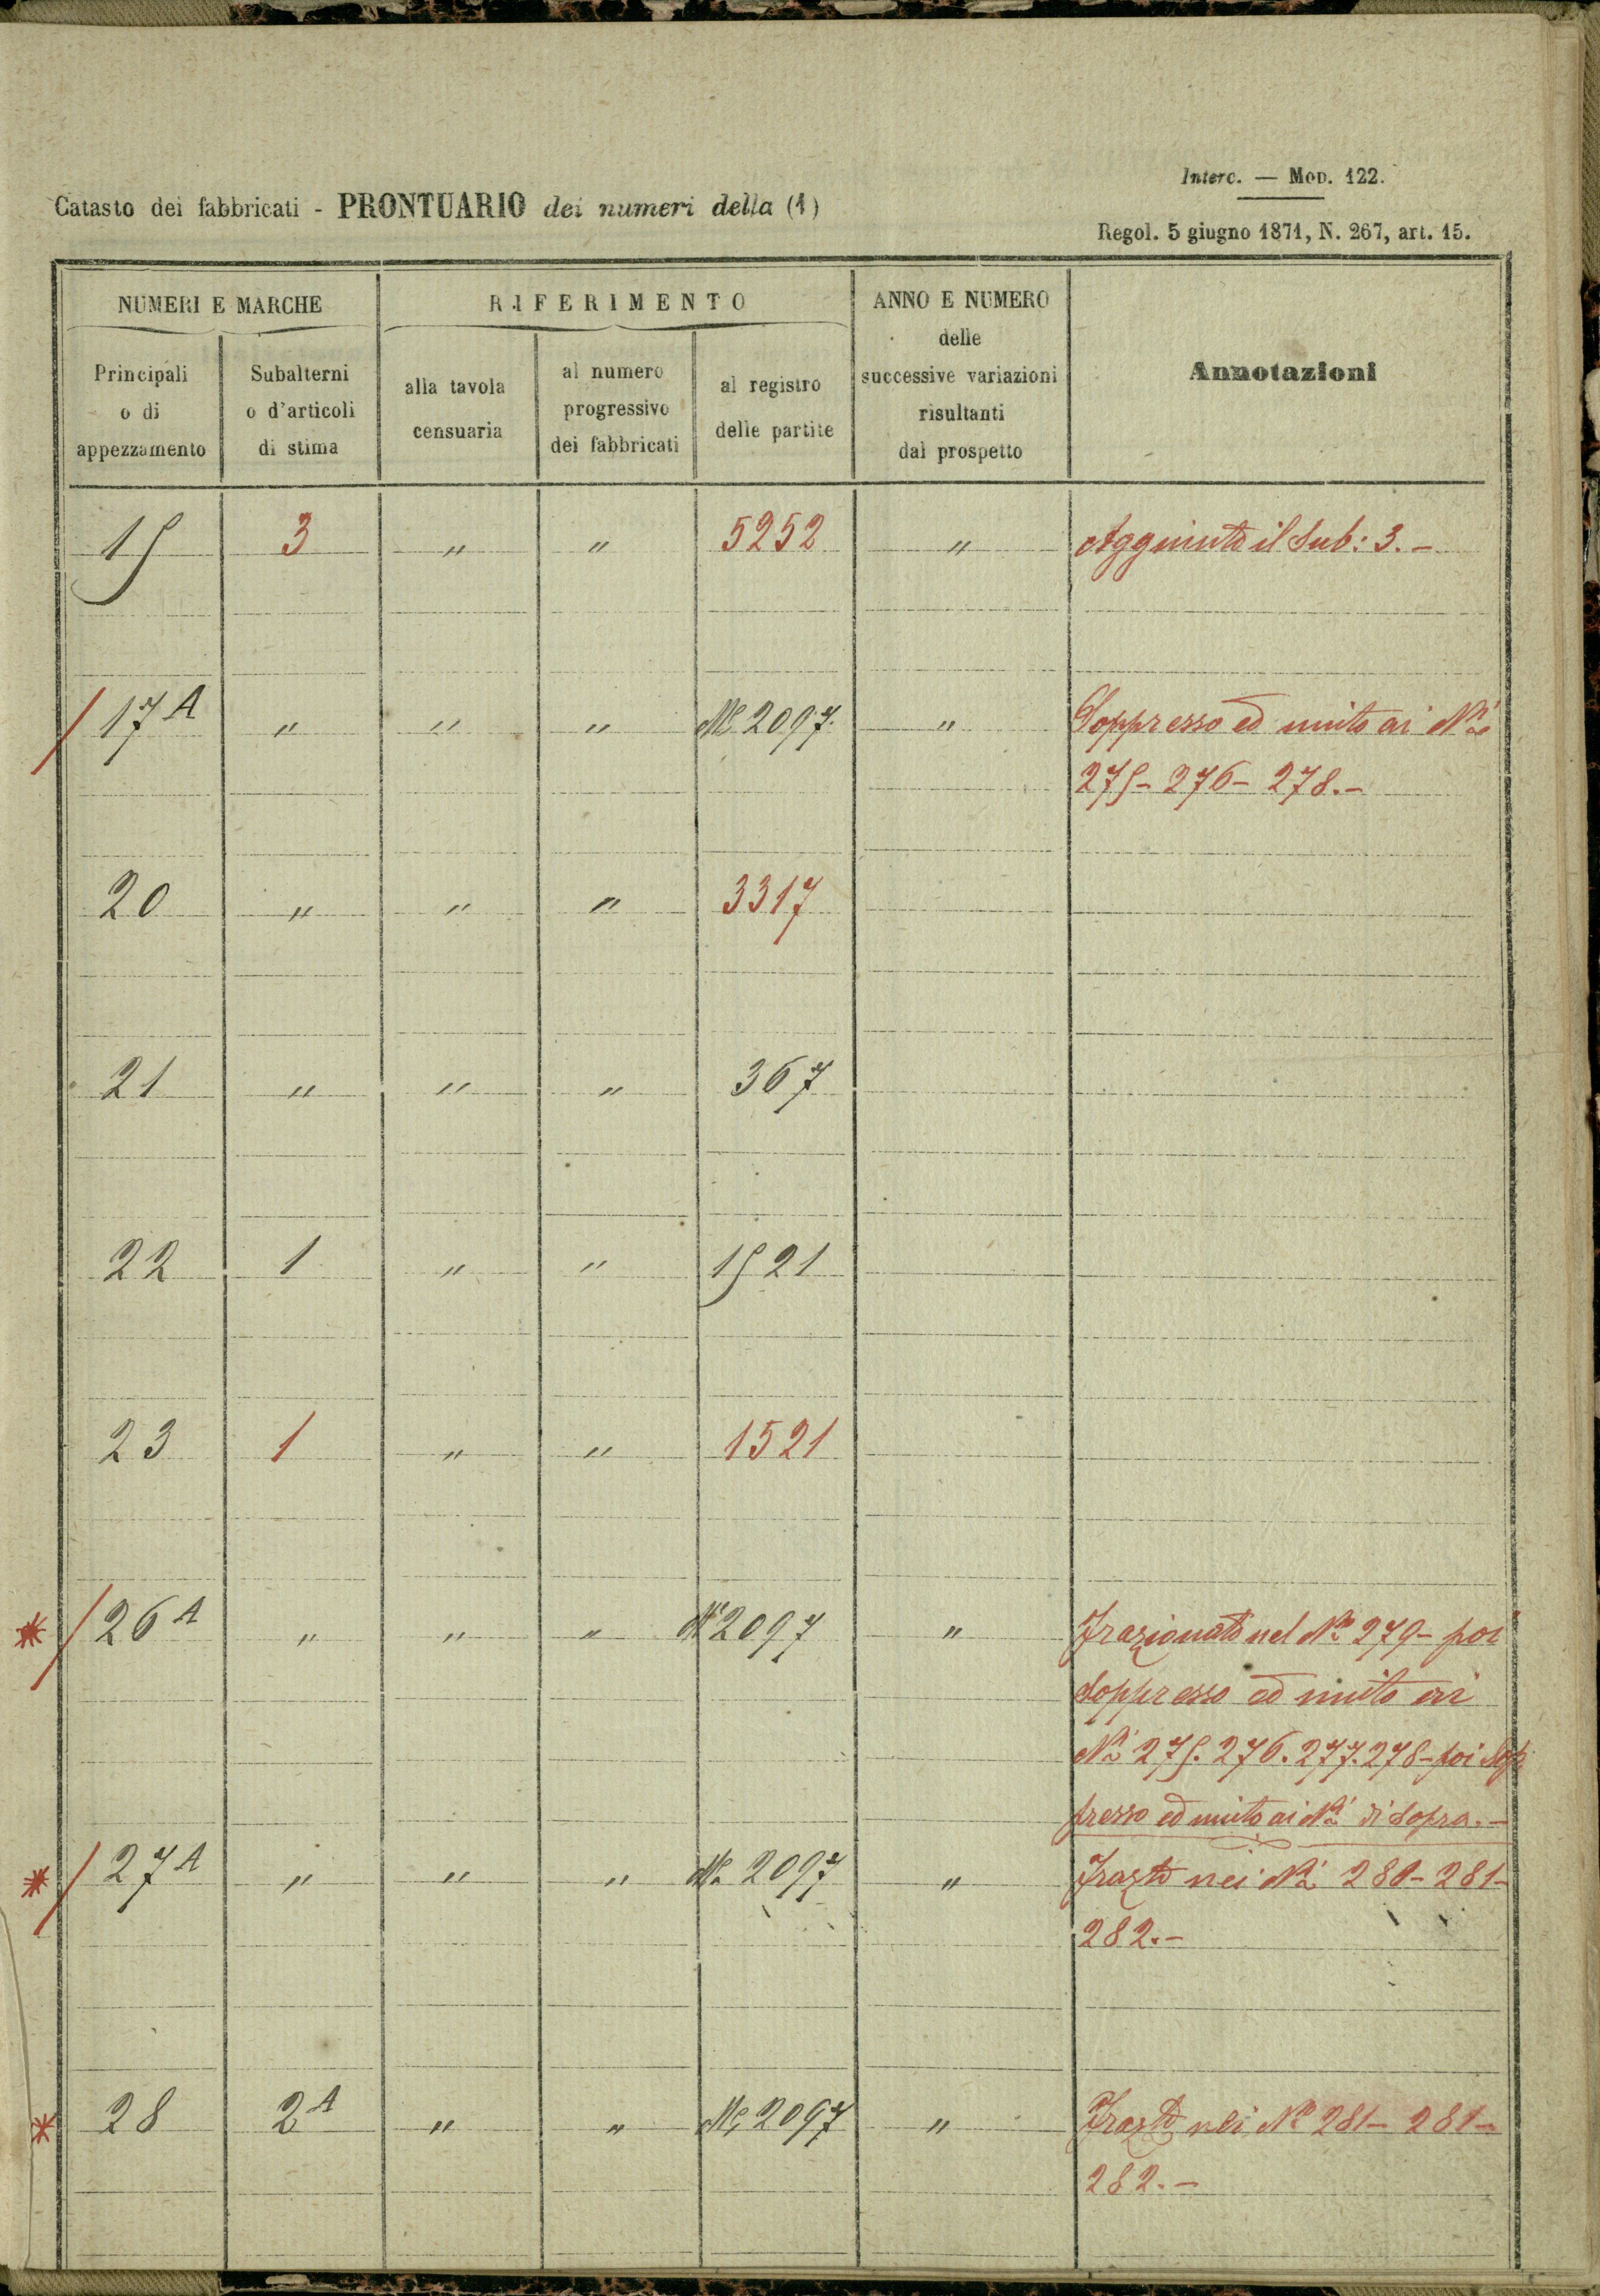 Interc. — Mod. 122.
Catasto dei fabbricati - PRONTUARIO dei numeri della (1)
Regol. 5 giugno 1871, N. 267, art. 15.
NUMERI E MARCHE
RIFERIMENTO
ANNO E NUMERO
delle
successive variazioni
risultanti
dal prospetto
Annotazioni
Principali
o di
appezzamento
Subalterni
o d'articoli
di stima
alla tavola
censuaria
al numero
progressivo
dei fabbricati
al registro
delle partite
15 3 " " 5252 " Aggiunto il Sub: 3.-
/ 17 A " " " Mc 2097. " Soppresso ed unito ai Ni
275- 276- 278.-
20 " " " 3317
21 " " " 367
22 1 " " 1521
23 1 " " 1521
* / 26 A " " " Mc 2097 " Frazionato nel No 279- poi
soppresso ed unito ai
Ni 275. 276. 277. 278- poi sop
presso ed unito ai Ni di sopra.-
* / 27 A " " " Mc 2097 " Frazto nei Ni 280- 281-
282.-
* 28 2 A " " Mc 2097 " Frazto nei Ni 281- 281-
282.-